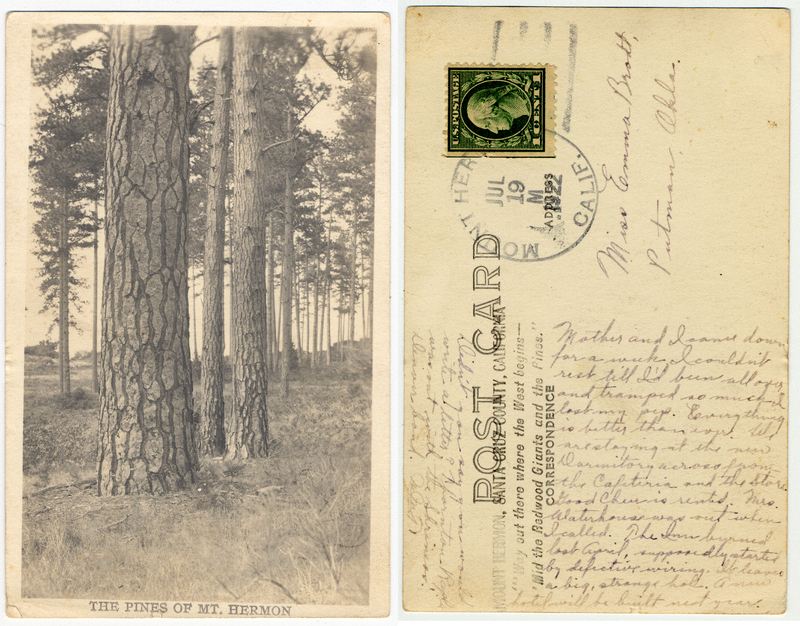 THE PINES OF MT. HERMON
U.S. POSTAGE
1 CENT 1
MOUNT HERMON CALIF.
JUL
19
M
1922
ADDRESS
Miss Emma Brott,
Putman, Okla.
POST CARD
MOUNT HERMON, SANTA CRUZ COUNTY, CALIFORNIA
"'Way out there where the West begins—
'Mid the Redwood Giants and the Pines."
CORRESPONDENCE
Mother and I came down
for a week. I couldn't
rest till I'd been all over
and tramped so much I
lost my pep. Everything
is better than ever. We
are staying at the new
Dormitory across from
the Cafeteria and the Store
Good Cheer is rented. Mrs.
Waterhouse was out when
I called. The Inn burned
last April, supposedly started
by defective wiring. It leaves
a big, strange hole. A new
hotel will be built next year.
Didn't you say you would
write a letter